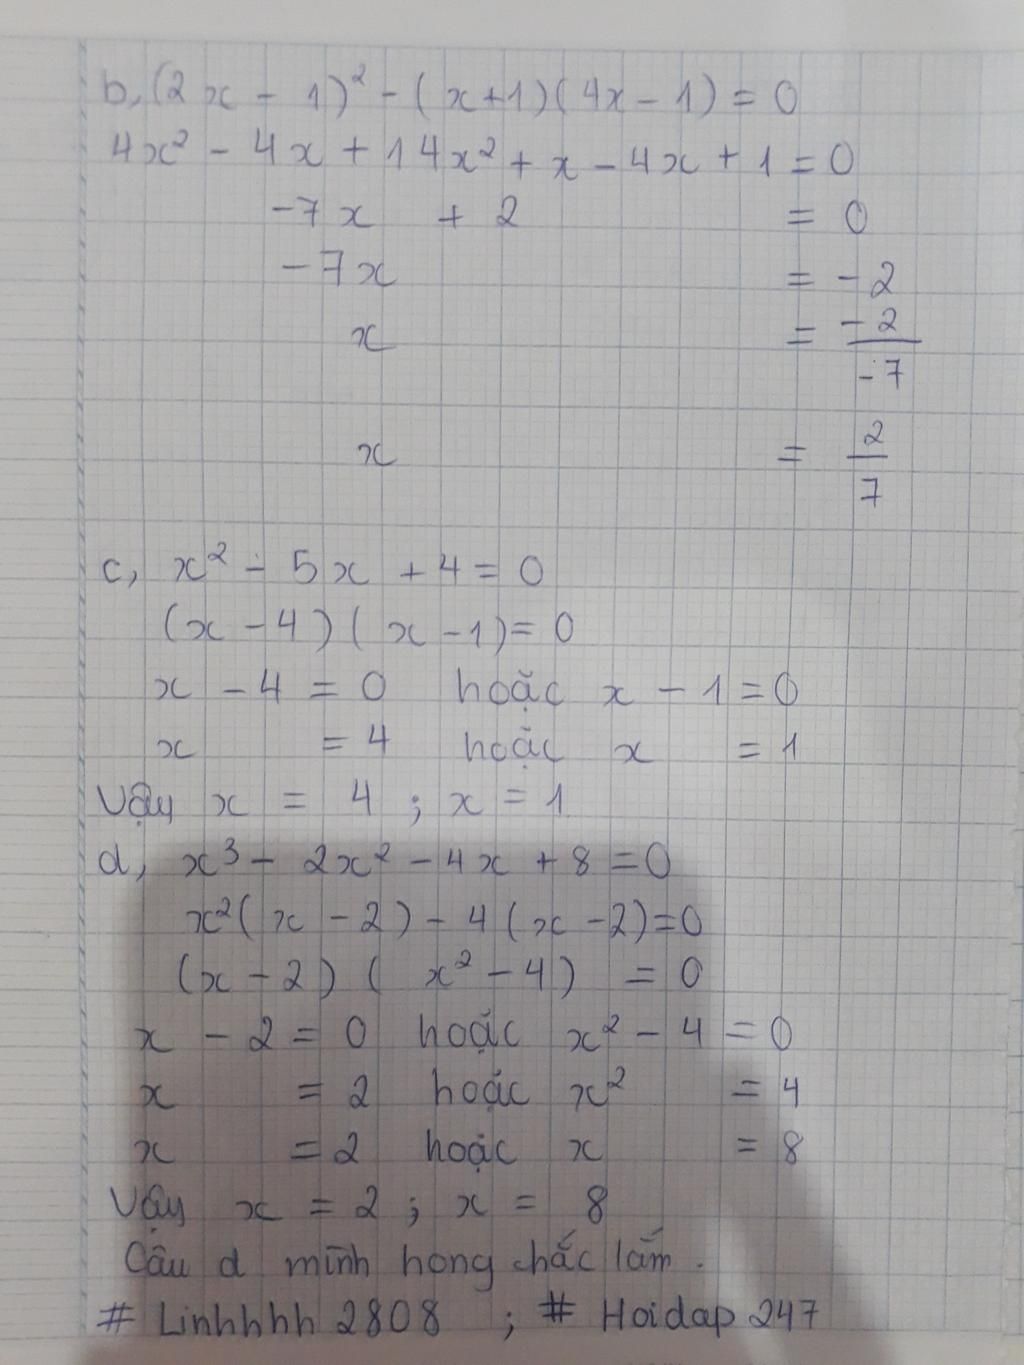 b, (2x - 1)² - (x+1)(4x - 1) = 0
4x² - 4x + 14x² + x - 4x + 1 = 0
-7x + 2 = 0
-7x = -2
x = -2/-7
x = 2/7
c, x² - 5x + 4 = 0
(x - 4)(x - 1) = 0
x - 4 = 0 hoặc x - 1 = 0
x = 4 hoặc x = 1
Vậy x = 4 ; x = 1
d, x³ - 2x² - 4x + 8 = 0
x²(x - 2) - 4(x - 2) = 0
(x - 2)(x² - 4) = 0
x - 2 = 0 hoặc x² - 4 = 0
x = 2 hoặc x² = 4
x = 2 hoặc x = 8
Vậy x = 2 ; x = 8
Câu d mình hong chắc lắm.
# Linhhhh 2808 ; # Hoidap 247